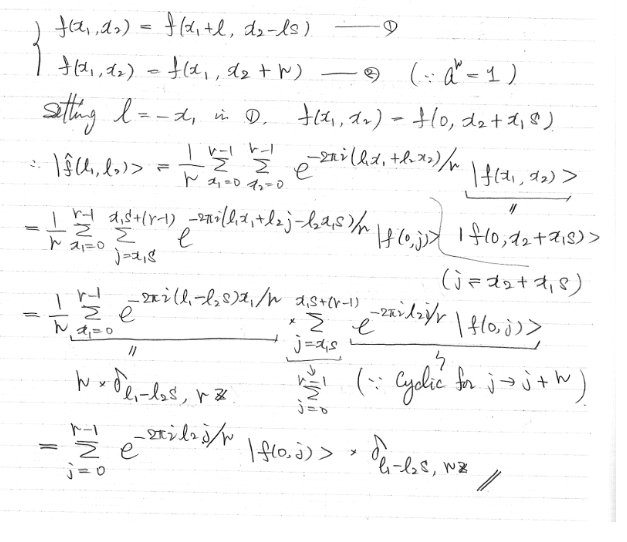 { f(x₁, x₂) = f(x₁+l, x₂−ls) —— ①
f(x₁, x₂) = f(x₁, x₂+r) —— ② (∵ aʳ = 1)
Setting l = −x₁ in ①. f(x₁, x₂) = f(0, x₂+x₁s)
∴ |f̂(l₁, l₂)> = 1/r Σ_{x₁=0}^{r−1} Σ_{x₂=0}^{r−1} e^{−2πi(l₁x₁+l₂x₂)/r} |f(x₁, x₂)>
= 1/r Σ_{x₁=0}^{r−1} Σ_{j=x₁s}^{x₁s+(r−1)} e^{−2πi(l₁x₁+l₂j−l₂x₁s)/r} |f(0,j)> |f(0, x₂+x₁s)>
(j = x₂+x₁s)
= 1/r Σ_{x₁=0}^{r−1} e^{−2πi(l₁−l₂s)x₁/r} × Σ_{j=x₁s}^{x₁s+(r−1)} e^{−2πil₂j/r} |f(0,j)>
r × δ_{l₁−l₂s, rℤ} Σ_{j=0}^{r−1} (∵ Cyclic for j → j+r)
= Σ_{j=0}^{r−1} e^{−2πil₂j/r} |f(0,j)> × δ_{l₁−l₂s, rℤ} //